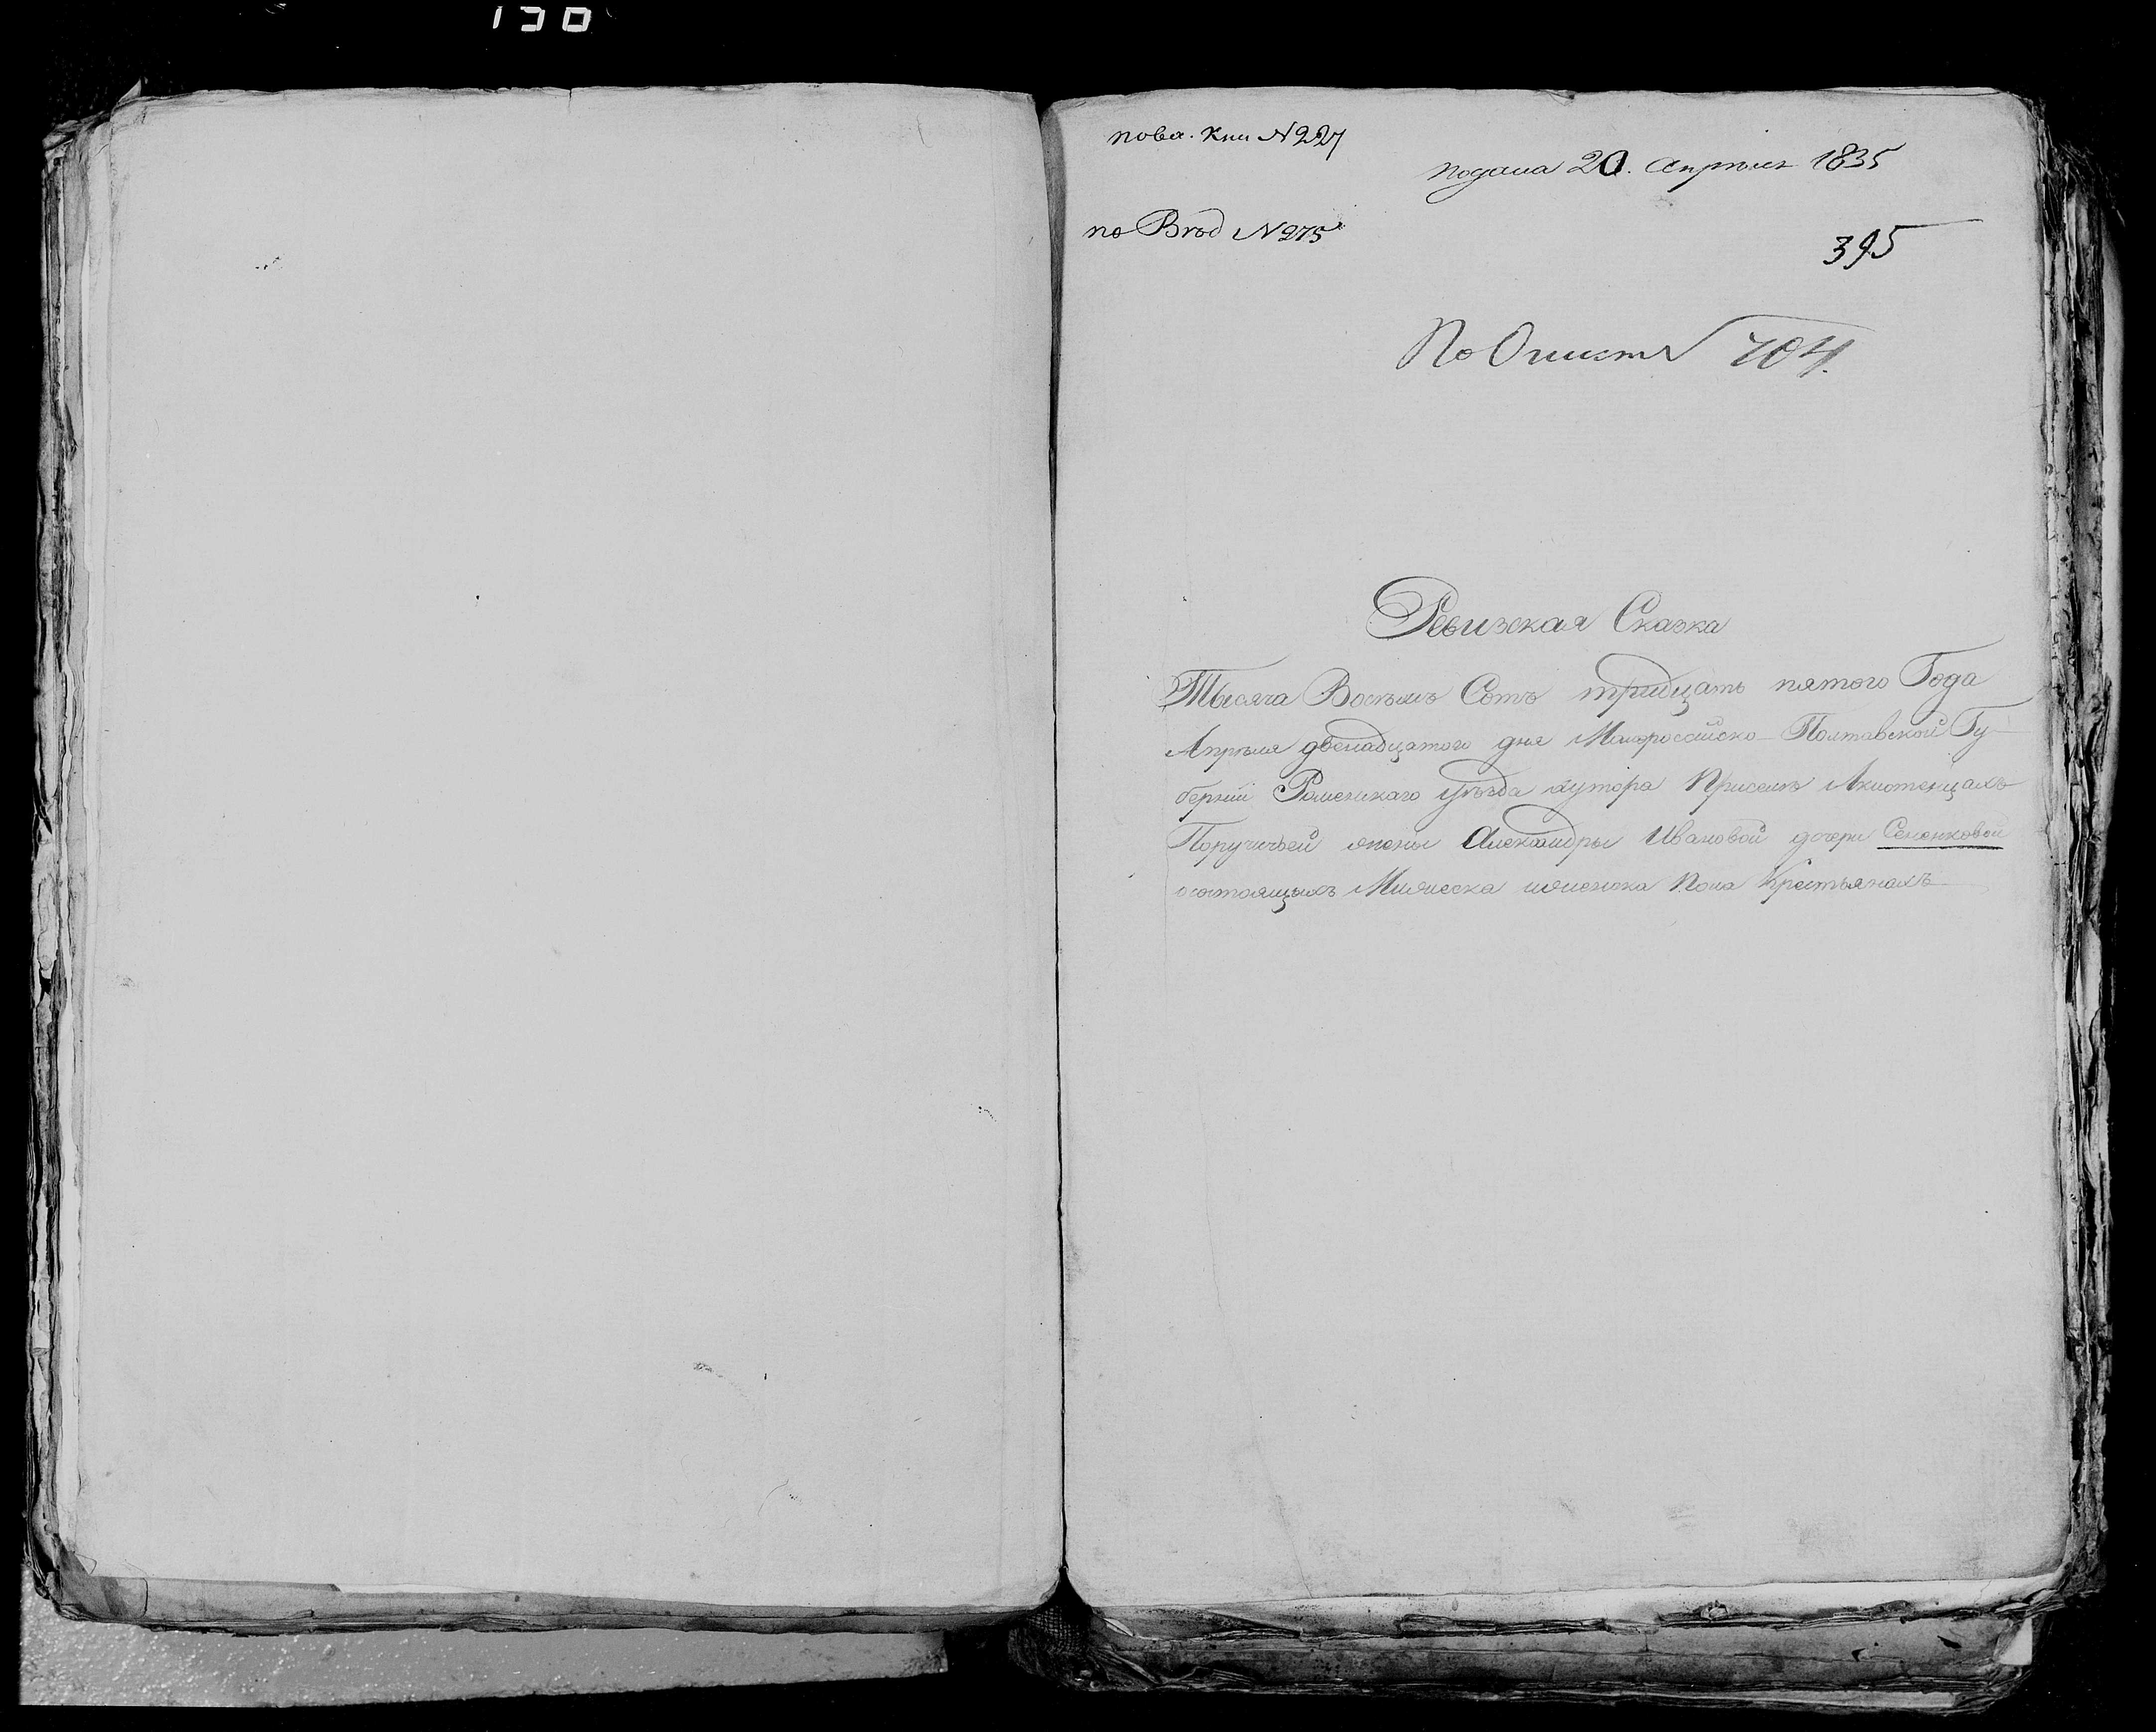 130
по вх. Кни N 227
подана 20. Апреля 1835
по Вход N 275
395
По Описи N 704.
Ревизская Сказка
Тысяча Восемъ Сотъ тридцать пятого Года
Апреля двенадцатого дня Малороссийско-Полтавской Гу-
бернии Роменскаго уезда хутора При селе
Поручичьей жены Александры Ивановой дочери Семенковой
о состоящихъ Мужеска и женска Пола Крестьянахъ